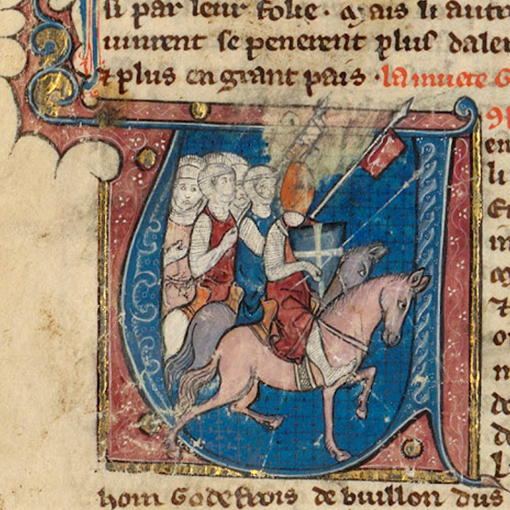 si par leur folie. Mais li autre
uinrent se penerent plus daler
⁊ plus en grant pais. la muete G
en
li
de
de
hom Godefrois de buillon dus